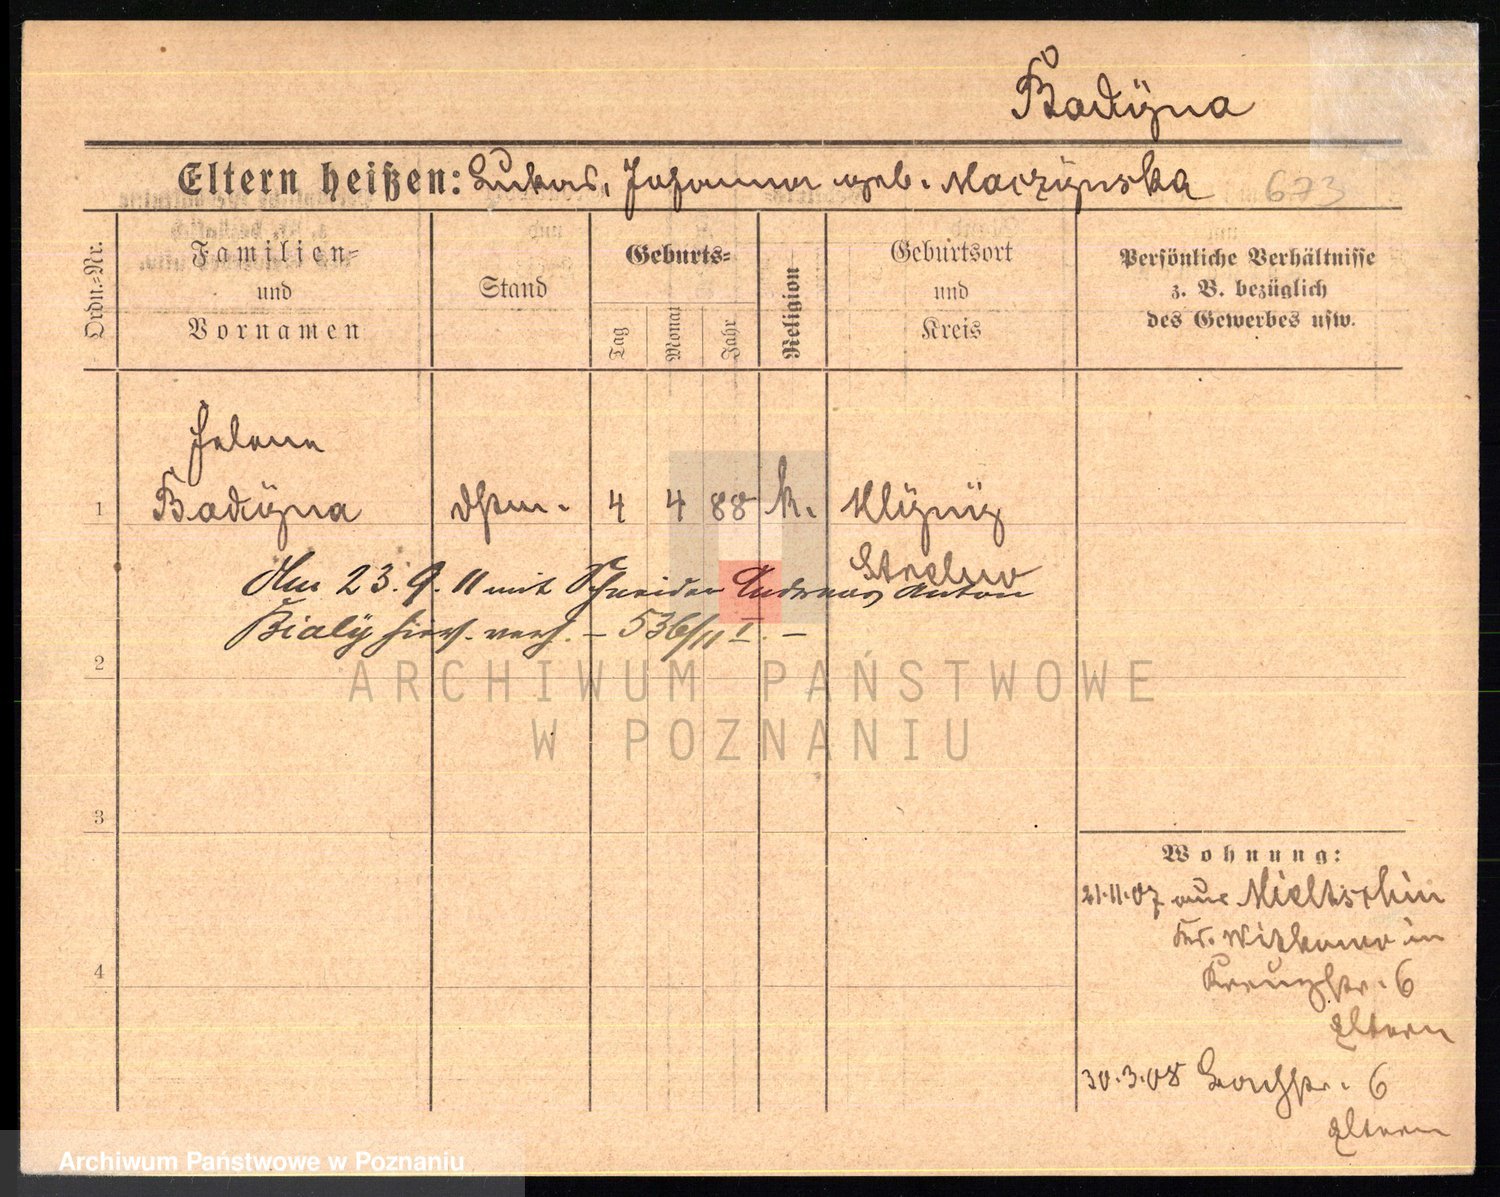 Badÿna
Eltern heißen: Lukas, Johanna geb. Maczynska 673
Ordn.-Nr.
Familien-
und
Vornamen
Stand
Geburts-
Tag
Monat
Jahr
Religion
Geburtsort
und
Kreis
Persönliche Verhältnisse
z. B. bezüglich
des Gewerbes usw.
Helene
1 Badÿna 4 4 88 k.
Strelno
Am 23.9.11 mit Schneider Andreas Anton
Bialÿ hies. verh. – 536/11 I. –
2
3
4
ARCHIWUM PAŃSTWOWE
W POZNANIU
Wohnung:
21.11.07 aus Mieltschin
Kr. Witkowo in
Kreuzstr. 6
Eltern
30.3.08 6
Eltern
Archiwum Państwowe w Poznaniu